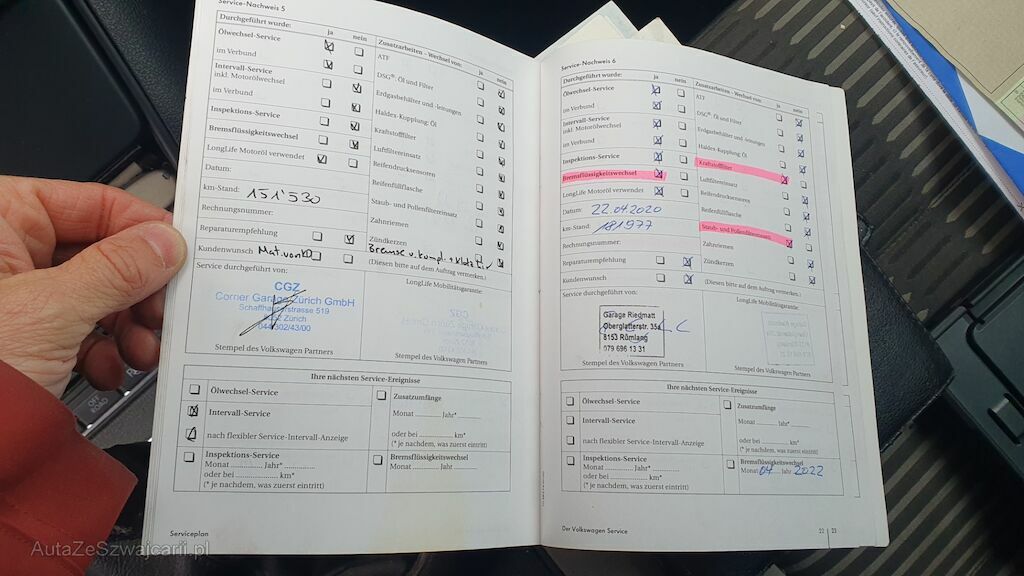 Service-Nachweis 5
Durchgeführt wurde: ja nein
Ölwechsel-Service
im Verbund
Intervall-Service
inkl. Motorölwechsel
im Verbund
Inspektions-Service
Bremsflüssigkeitswechsel
LongLife Motoröl verwendet
Datum:
km-Stand: 151'530
Rechnungsnummer:
Reparaturempfehlung
Kundenwunsch
Zusatzarbeiten – Wechsel von: ja nein
ATF
DSG®: Öl und Filter
Erdgasbehälter und -leitungen
Haldex-Kupplung: Öl
Kraftstofffilter
Luftfiltereinsatz
Reifendrucksensoren
Reifenfüllflasche
Staub- und Pollenfiltereinsatz
Zahnriemen
Zündkerzen
(Diesen bitte auf dem Auftrag vermerken.)
Service durchgeführt von:
CGZ
Corner Garage Zürich GmbH
Schaffhauserstrasse 519
Zürich
044/302/43/00
Stempel des Volkswagen Partners
LongLife Mobilitätsgarantie:
Stempel des Volkswagen Partners
Ihre nächsten Service-Ereignisse
Ölwechsel-Service
Intervall-Service
nach flexibler Service-Intervall-Anzeige
Inspektions-Service
Monat Jahr*
oder bei km*
(* je nachdem, was zuerst eintritt)
Zusatzumfänge
Monat Jahr*
oder bei km*
(* je nachdem, was zuerst eintritt)
Bremsflüssigkeitswechsel
Monat Jahr
Serviceplan
Service-Nachweis 6
Durchgeführt wurde: ja nein
Ölwechsel-Service
im Verbund
Intervall-Service
inkl. Motorölwechsel
im Verbund
Inspektions-Service
Bremsflüssigkeitswechsel
LongLife Motoröl verwendet
Datum: 22.04.2020
km-Stand: 181977
Rechnungsnummer:
Reparaturempfehlung
Kundenwunsch
Zusatzarbeiten – Wechsel von: ja nein
ATF
DSG®: Öl und Filter
Erdgasbehälter und -leitungen
Haldex-Kupplung: Öl
Kraftstofffilter
Luftfiltereinsatz
Reifendrucksensoren
Reifenfüllflasche
Staub- und Pollenfiltereinsatz
Zahnriemen
Zündkerzen
(Diesen bitte auf dem Auftrag vermerken.)
Service durchgeführt von:
Garage Riedmatt
Oberglatterstr. 35a
8153 Rümlang
079 696 13 31
Stempel des Volkswagen Partners
LongLife Mobilitätsgarantie:
Stempel des Volkswagen Partners
Ihre nächsten Service-Ereignisse
Ölwechsel-Service
Intervall-Service
nach flexibler Service-Intervall-Anzeige
Inspektions-Service
Monat Jahr*
oder bei km*
(* je nachdem, was zuerst eintritt)
Zusatzumfänge
Monat Jahr*
oder bei km*
(* je nachdem, was zuerst eintritt)
Bremsflüssigkeitswechsel
Monat 04 Jahr 2022
Der Volkswagen Service
22 23
OFF
ROAD
AutaZeSzwajcarii.pl